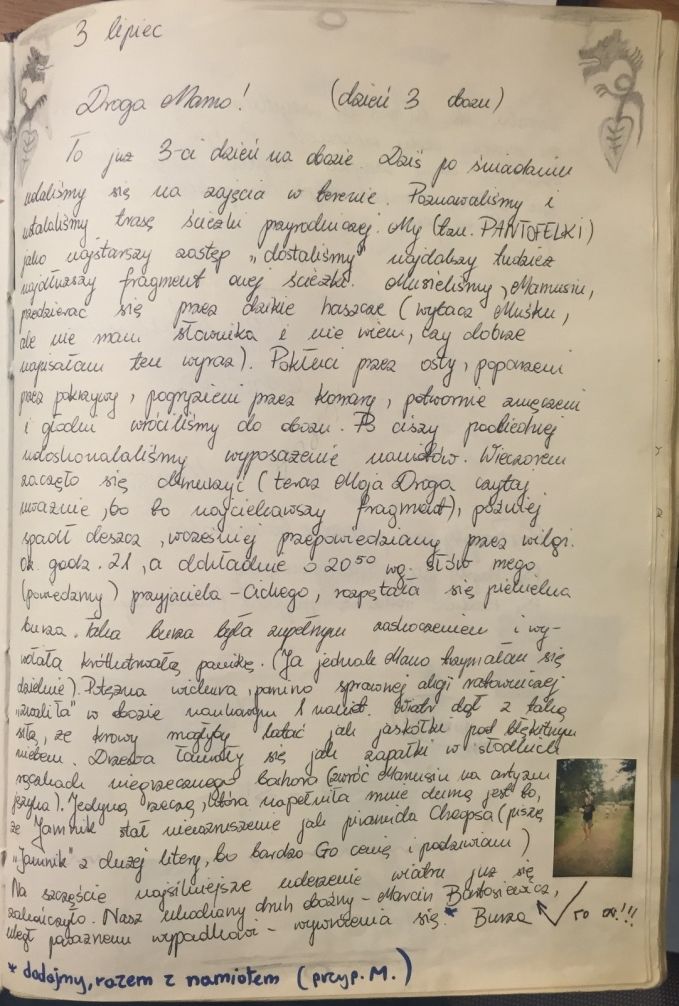 3 lipiec
Droga Mamo! (dzień 3 obozu)
To już 3-ci dzień na obozie. Dziś po śniadaniu
udaliśmy się na zajęcia w terenie. Poznawaliśmy i
ustalaliśmy trasę ścieżki przyrodniczej. My (tzn. PANTOFELKI)
jako najstarszy zastęp „dostaliśmy" najdalszy tudzież
najdłuższy fragment owej ścieżki. Musieliśmy, Mamusiu,
przedzierać się przez dzikie haszcze (wybacz Muśku,
ale nie mam słownika i nie wiem, czy dobrze
napisałam ten wyraz). Pokłuci przez osty, poparzeni
przez pokrzywy, pogryzieni przez komary, potwornie zmęczeni
i głodni wróciliśmy do obozu. Po ciszy poobiedniej
udoskonalaliśmy wyposażenie namiotów. Wieczorem
zaczęło się chmurzyć (teraz Moja Droga czytaj
uważnie, bo to najciekawszy fragment), później
spadł deszcz, wcześniej przepowiedziany przez wilgi.
Ok. godz. 21, a dokładnie o 20⁵⁰ wg. słów mego
(powiedzmy) przyjaciela - Cichego, rozpętała się piekielna
burza. Taka burza była zupełnym zaskoczeniem i wy-
wołała krótkotrwałą panikę. (Ja jednak Mamo trzymałam się
dzielnie). Potężna wichura, pomimo sprawnej akcji ratowniczej
„zwaliła" w obozie naukowym 1 namiot. Wiatr dął z taką
siłą, że krowy mogłyby latać jak jaskółki pod błękitnym
niebem. Drzewa łamały się jak zapałki w słodkich
rączkach niegrzecznego bachora (zwróć Mamusiu na artyzm
języka). Jedyną rzeczą, która napełniła mnie dumą jest to,
że "Jamnik" stał niewzruszenie jak piramida Cheopsa (piszę
"Jamnik" z dużej litery, bo bardzo Go cenię i podziwiam)
Na szczęście najsilniejsze uderzenie wiatru już się
zakończyło. Nasz ukochany druh obożny - Marcin Bartosiewicz,
uległ poważnemu wypadkowi - wywrócenia się.* Burza
to on!!!
* dodajmy, razem z namiotem (przyp. M.)